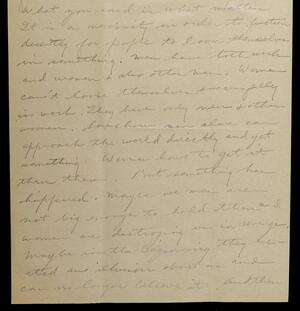 What you said is what matters
It is a necessity in order to function
directly for people to lose themselves
in something. Men have both work
and women & also other men. Women
can't loose themselves successfully
in work. They have only men & other
women. Somehow men alone can
approach the world directly and get
something. Women have to get it
thru them. But something has
happened. Maybe we men are
not big enough to hold them and
women are destroying us in revenge.
Maybe in the beginning they cre-
ated an illusion about us and
can no longer believe it. And then